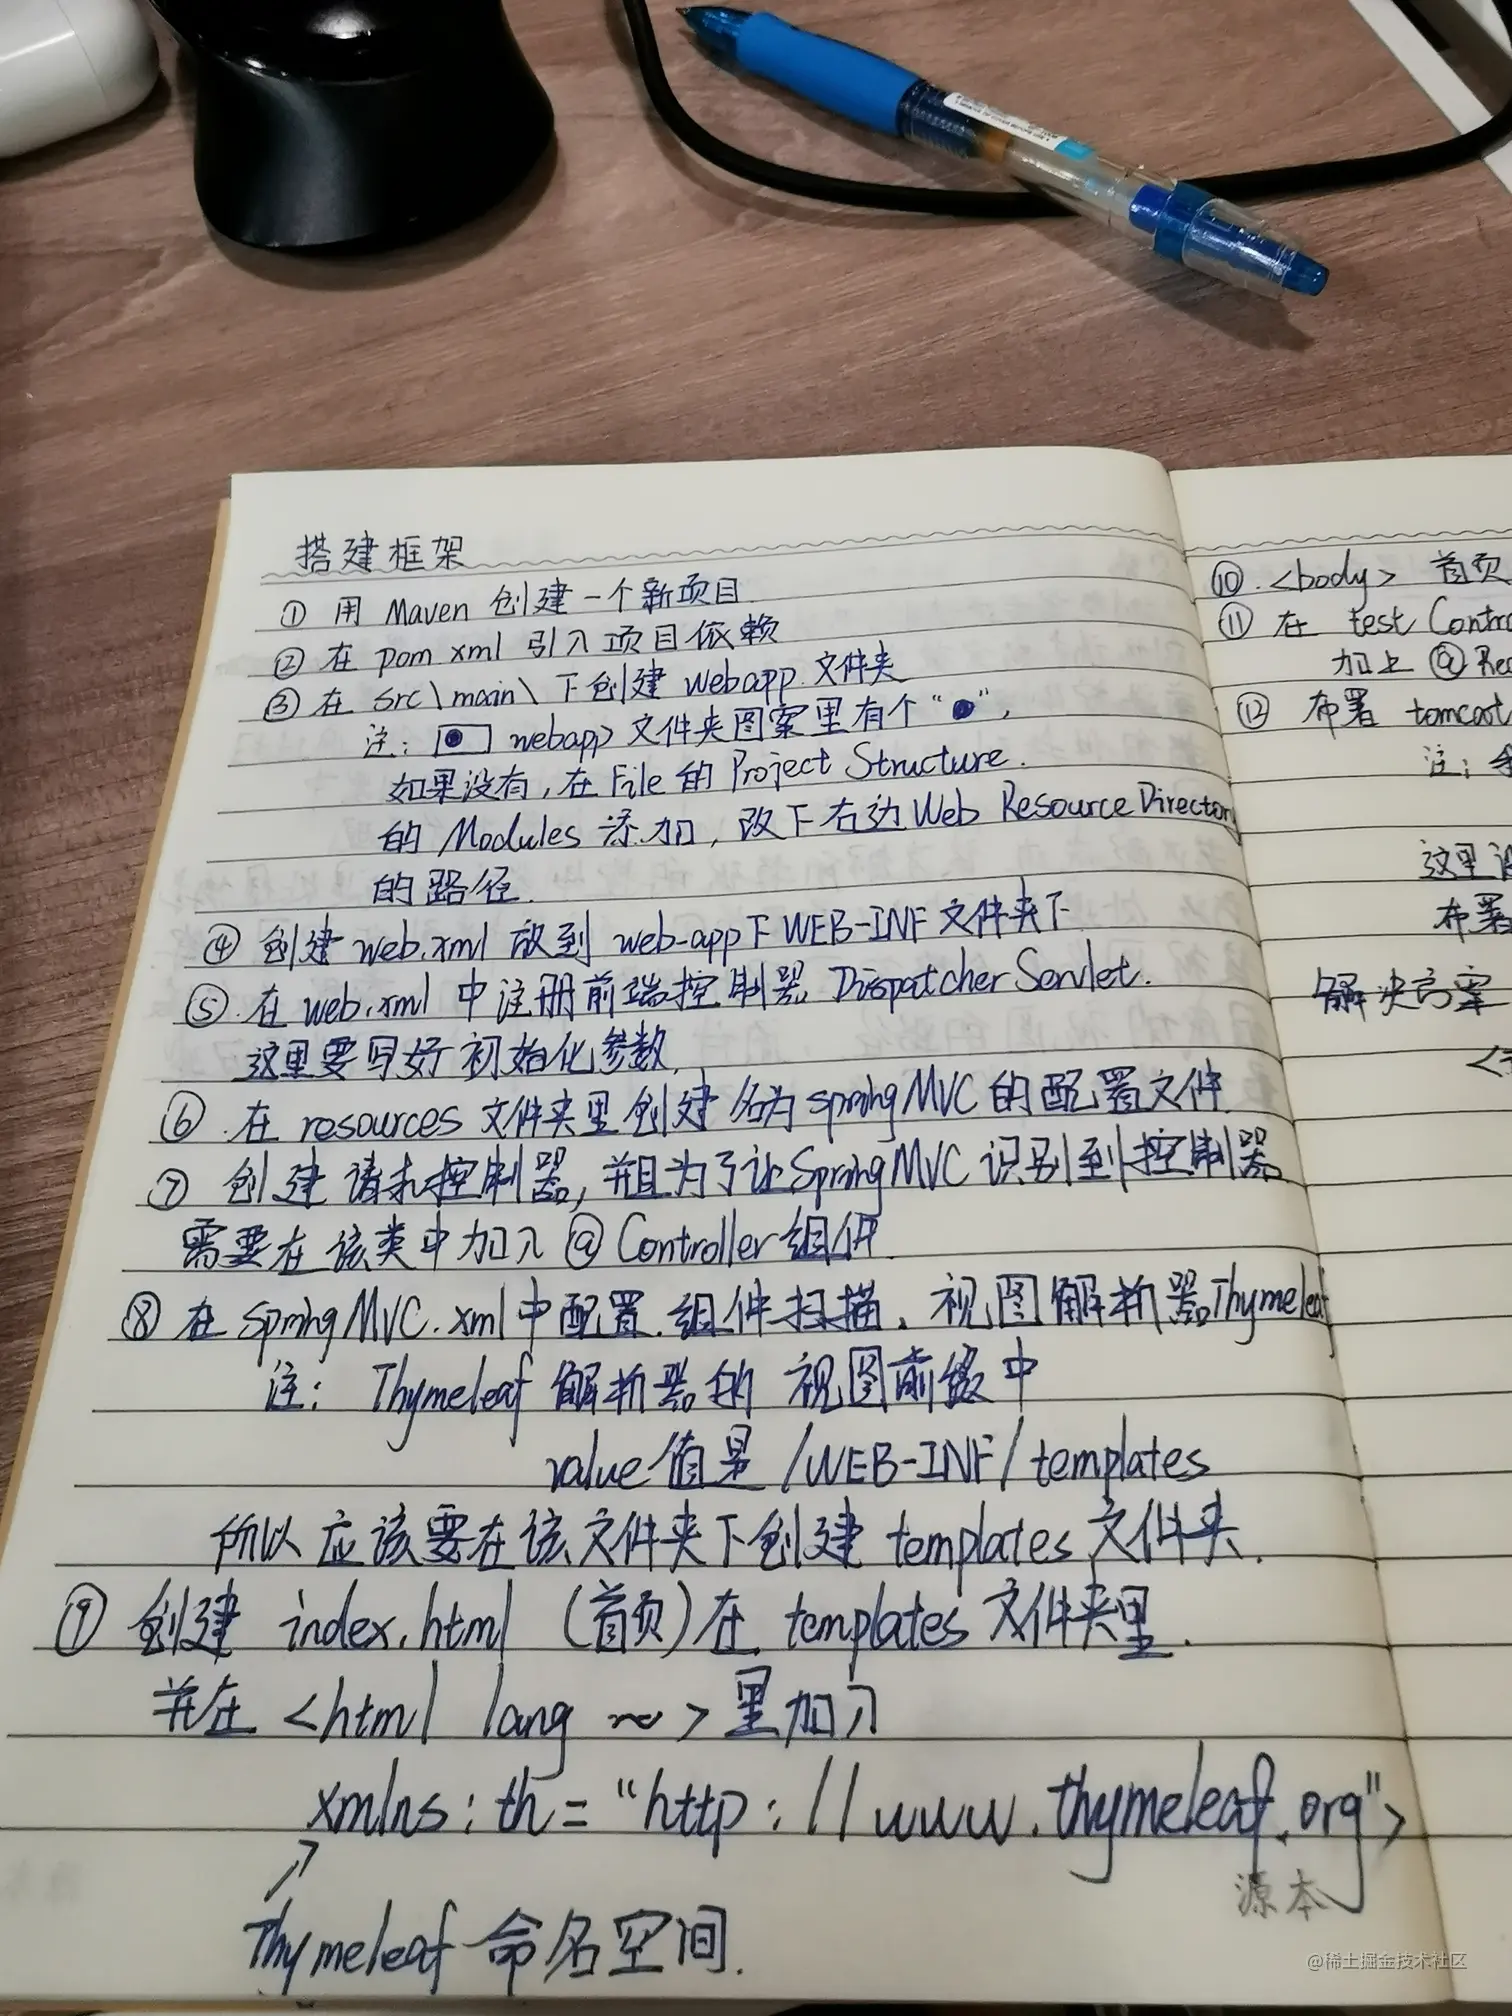 搭建框架
① 用 Maven 创建一个新项目
② 在 pom.xml 引入项目依赖
③ 在 src\main\ 下创建 webapp 文件夹
注: webapp 文件夹图案里有个“●”,
如果没有,在 File 的 Project Structure.
的 Modules 添加,改下右边Web Resource Directory
的路径.
④ 创建 web.xml 放到 web-app下 WEB-INF 文件夹下
⑤.在 web.xml 中注册前端控制器 DispatcherServlet.
这里要写好初始化参数.
⑥.在 resources 文件夹里创建名为springMVC的配置文件.
⑦ 创建请求控制器,并且为了让SpringMVC识别到控制器
需要在该类中加入@Controller组件.
⑧ 在 springMVC.xml中配置.组件扫描、视图解析器Thymeleaf
注: Thymeleaf 解析器的 视图前缀中
value值是 /WEB-INF/templates
所以应该要在该文件夹下创建 templates 文件夹.
⑨ 创建 index.html (首页)在 templates 文件夹里.
并在 <html lang ~> 里加入
xmlns:th="http://www.thymeleaf.org">
Thymeleaf 命名空间.
源本
⑩.<body> 首页
⑪ 在 test Contro
加上 @Req
⑫ 布署 tomcat
注:
这里
布署
解决方案
<
@稀土掘金技术社区